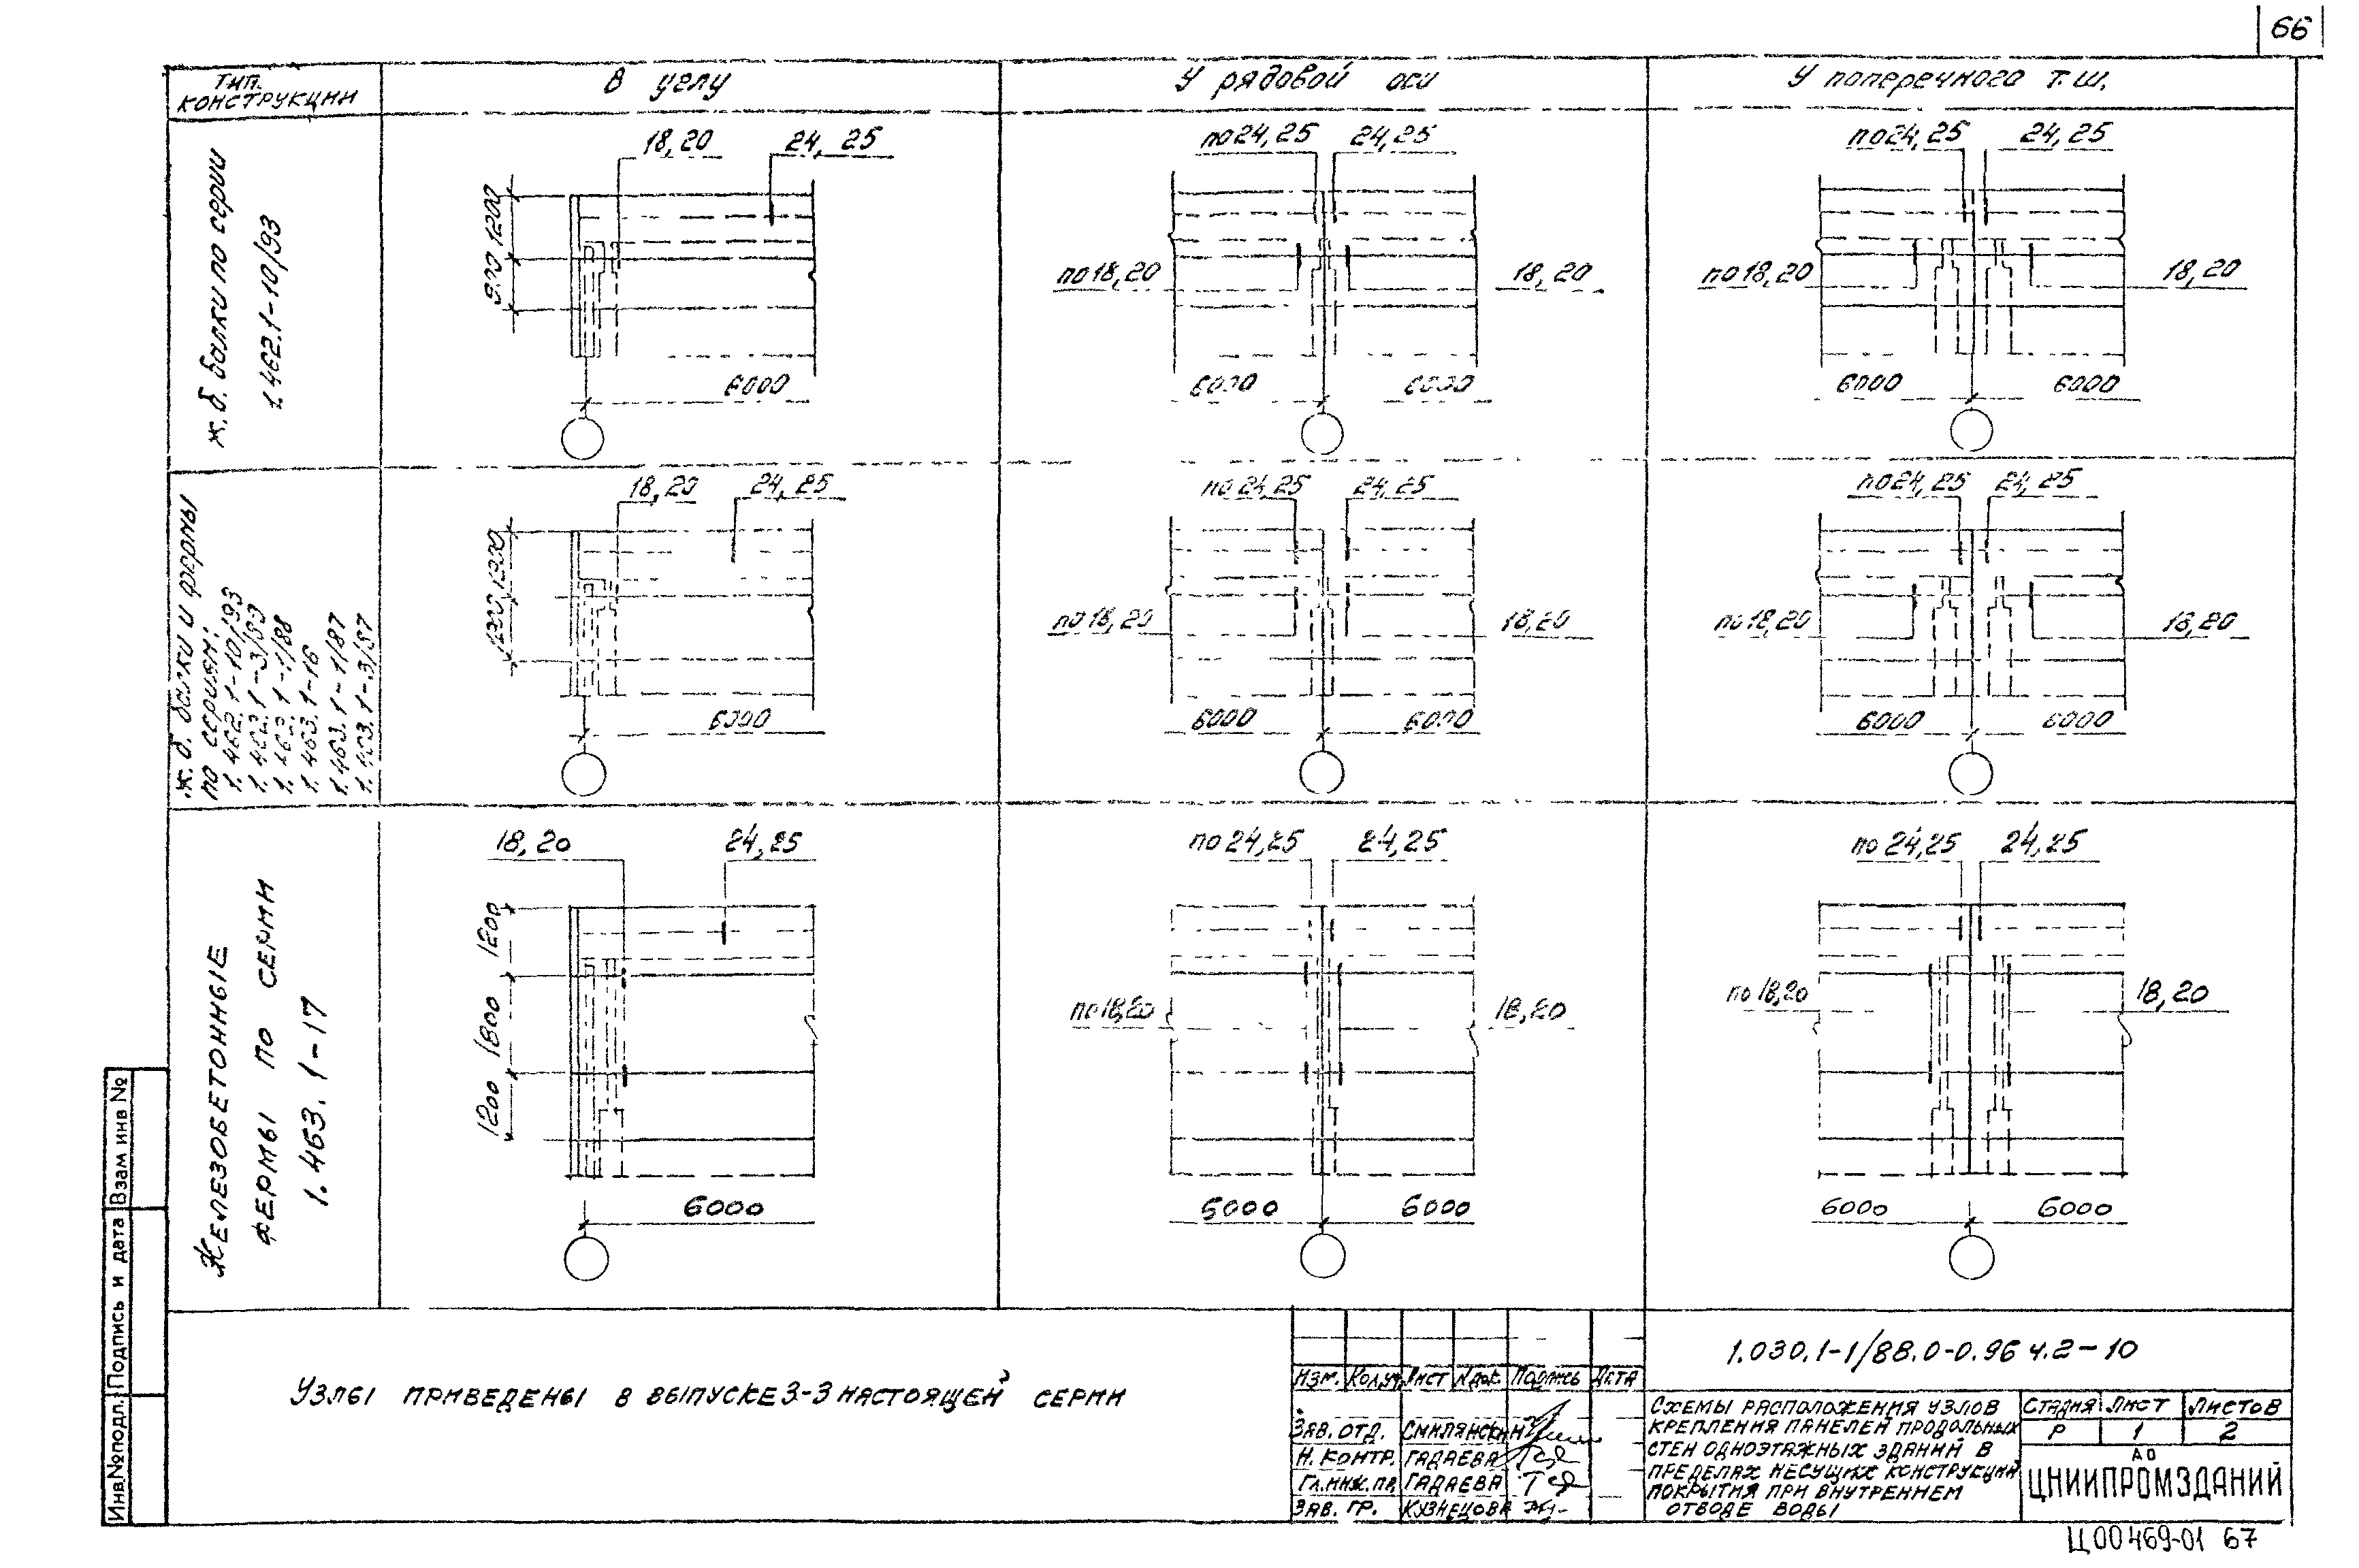 66
ТИП. КОНСТРУКЦИИ
В углу
У рядовой оси
У поперечного т.ш.
ж.б. балки по серии
1.462.1-10/93
18,20
24, 25
1200
900
6000
по 24,25
24,25
по 18,20
18,20
6000
6000
по 24,25
24,25
по 18,20
18,20
6000
6000
ж.б. балки и фермы
по сериям:
1.462.1-10/93
1.463.1-16
1.463.1-1/87
1.463.1-3/87
18,20
24,25
1200
6000
по 24,25
24,25
по 18,20
18,20
6000
6000
по 24,25
24,25
по 18,20
18,20
6000
6000
ЖЕЛЕЗОБЕТОННЫЕ
ФЕРМЫ ПО СЕРИИ
1.463.1-17
18,20
24,25
1200
1800
1200
6000
по 24,25
24,25
по 18,20
18,20
6000
6000
по 24,25
24,25
по 18,20
18,20
6000
6000
УЗЛЫ ПРИВЕДЕНЫ В ВЫПУСКЕ 3-3 НАСТОЯЩЕЙ СЕРИИ
Взам инв №
Подпись и дата
Инв.№подл.
Изм. Кол.уч Лист №док. Подпись Дата
Зав. отд. Смилянский
Н. контр. Гадаева
Гл.инж.пр. Гадаева
Зав. гр. Кузнецова
1.030.1-1/88.0-0.96 ч.2-10
Схемы расположения узлов
крепления панелей продольных
стен одноэтажных зданий в
пределах несущих конструкций
покрытия при внутреннем
отводе воды
Стадия Лист Листов
Р 1 2
АО
ЦНИИПРОМЗДАНИЙ
Ц00469-01 67